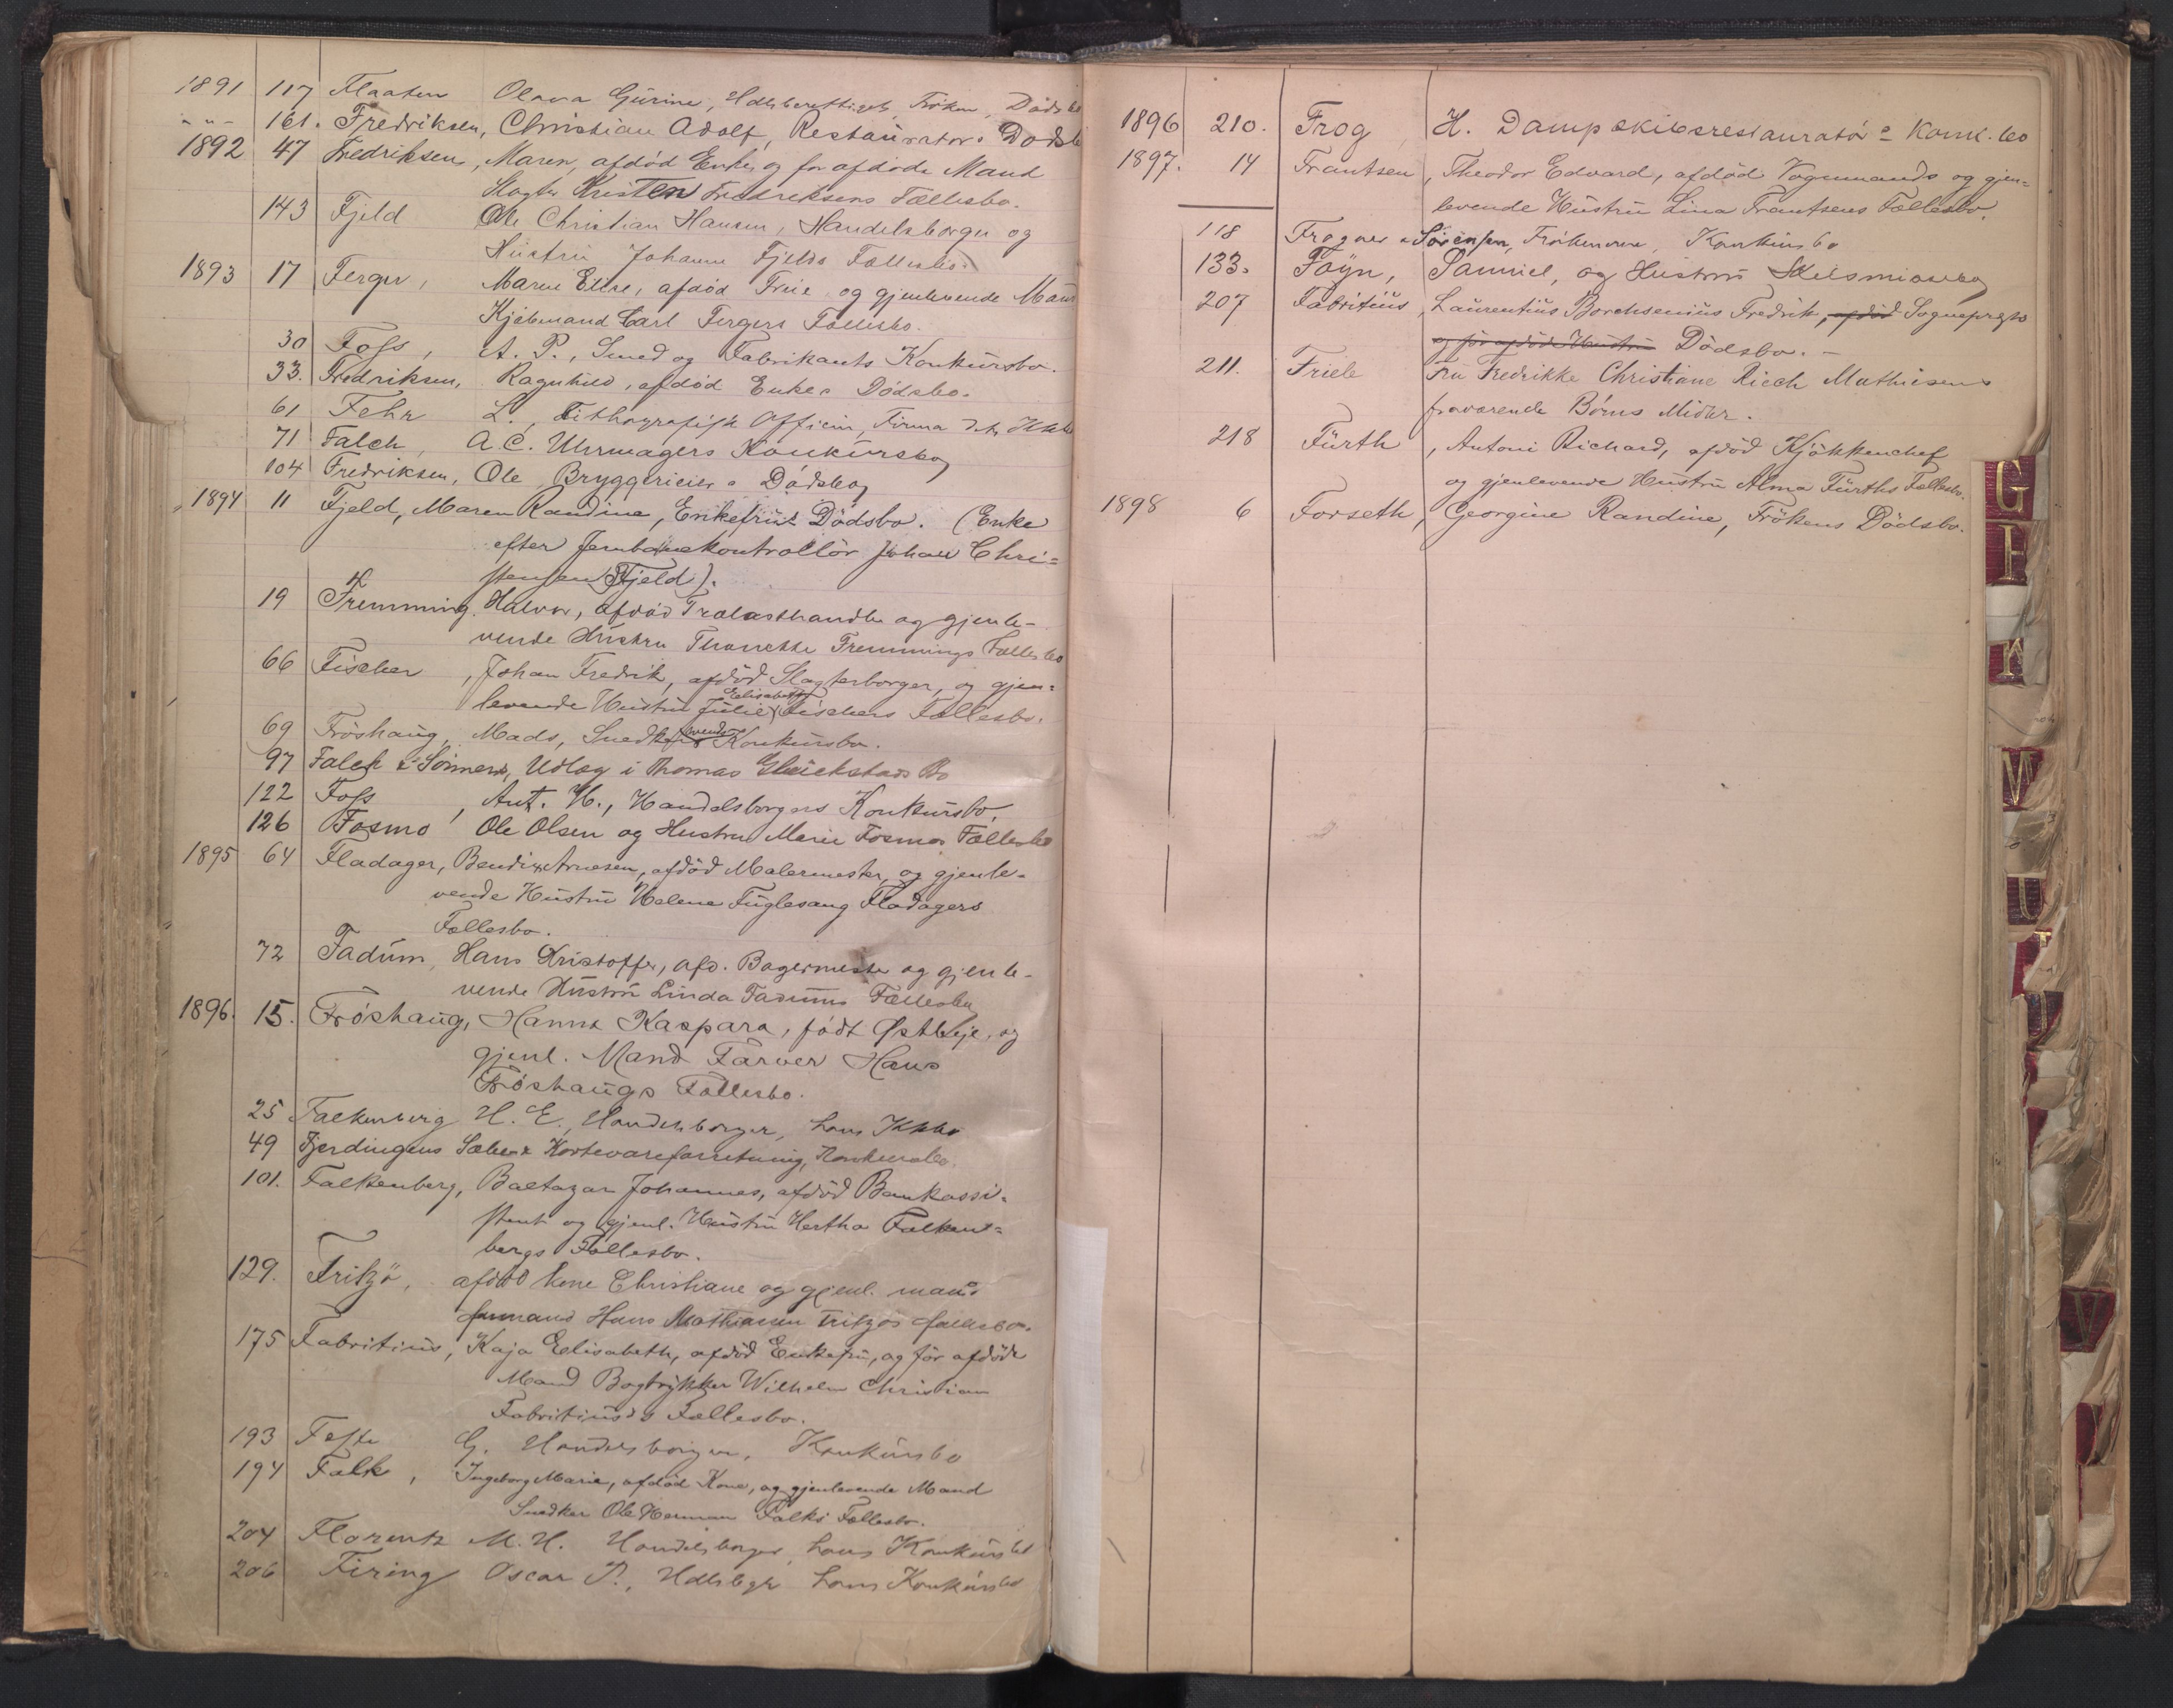 1891 117 Flaaten Olava Gurine, Hdlsberettiget, Frøken, Dødsbo
- " - 161. Fredriksen, Christian Adolf, Restauratørs Dødsbo
1892 47 Fredriksen, Maren, afdød Enke og før afdøde Mand
Slagter Kristen Fredriksens Fællesbo.
143 Fjeld Ole Christian Hansen, Handelsborger og
Hustru Johanne Fjelds Fællesbo.
1893 17 Ferger, Maren Elise, afdød og gjenlevende Mand
Kjøbmand Carl Fergers Fællesbo.
30 Foss, A. P., Smed og Fabrikants Konkursbo.
33. Fredriksen, Ragnhild, afdød Enkes Dødsbo.
61 Fehr L., Lithografisk Officin, Firma dets
71 Falch, A. C. Uhrmagers Konkursbo
104 Fredriksen, Ole, Bryggerieiers Dødsbo
1894 11 Fjeld, Maren Randine, Enkefrus Dødsbo. (Enke
efter Jernbanekontrollør Johan Chri=
stensen Fjeld).
19 Fremming, Halvor, afdød Trælasthandler og gjenle-
vende Hustru Thonette Fremmings Fællesbo
66 Fischer, Johan Fredrik, afdød Slagterborger, og gjen=
levende Hustru Julie Elisabeth Fischers Fællesbo.
69 Frøshaug, Mads, Snedkersvends Konkursbo.
97 Falck & Sønner, Udlæg i Thomas Glückstads Bo
122 Foss, Ant. H., Handelsborgers Konkursbo.
126 Fosmo, Ole Olsen og Hustru Marie Fosmos Fællesbo
1895 64 Fladager, Bendix Arnesen, afdød Malermester, og gjenle-
vende Hustru Helene Fuglesang Fladagers
Fællesbo.
72 Fadum, Hans Kristoffer, afd. Bagermester og gjenle-
vende Hustru Linda Fadums Fællesbo
1896. 15. Frøshaug, Hanna Kaspara, født Østbye, og
gjenl. Mand Farver Hans
Frøshaugs Fællesbo.
25 Falkenberg H. E., Handelsborger, hans Kkbo
49 Fjerdingens Sæbe & Kortevareforretning, Konkursbo.
101. Falkenberg, Baltazar Johannes, afdød Bankassi-
stent og gjenl. Hustru Hertha Falken=
bergs Fællesbo.
129. Fritzø, afdød kone Christiane og gjenl. mand
Hans Mathiasen Fritzøs fællesbo.
175 Fabritius, Kaja Elisabeth, afdød Enkefru, og før afdøde
Mand Bogtrykker Wilhelm Christian
Fabritius's Fællesbo.
193 Feste G. Handelsborger, Konkursbo
194 Falk, Ingeborg Marie, afdød Kone, og gjenlevende Mand
Snedker Ole Herman Falks Fællesbo.
204 Florentz M. H. Handelsborger, hans Konkursbo
206 Firing Oscar P., Hdlsbgr hans Konkursbo
1896 210. Frog H. Dampskibsrestauratørs Konk. bo
1897. 14 Frantsen, Theodor Edvard, afdød Vognmands og gjen=
levende Hustru Lina Frantsens Fællesbo.
118 Frogner & Sørensen, Frøknerne, Konkursbo
133. Foyn, Samuel, og Hustrus Skilsmissebo
207 Fabritius, Laurentius Borchsenius Fredrik, afdød Sogneprests
og før afdøde Hustru Dødsbo. -
211. Friele Fru Fredrikke Christiane Riech Mathiesens
fraværende Børns Midler.
218 Fürth, Antoni Richard, afdød Kjøkkenchef
og gjenlevende Hustru Alma Fürths Fællesbo.
1898 6 Forseth, Georgine Randine, Frøkens Dødsbo.
G
I
K
W
U
V